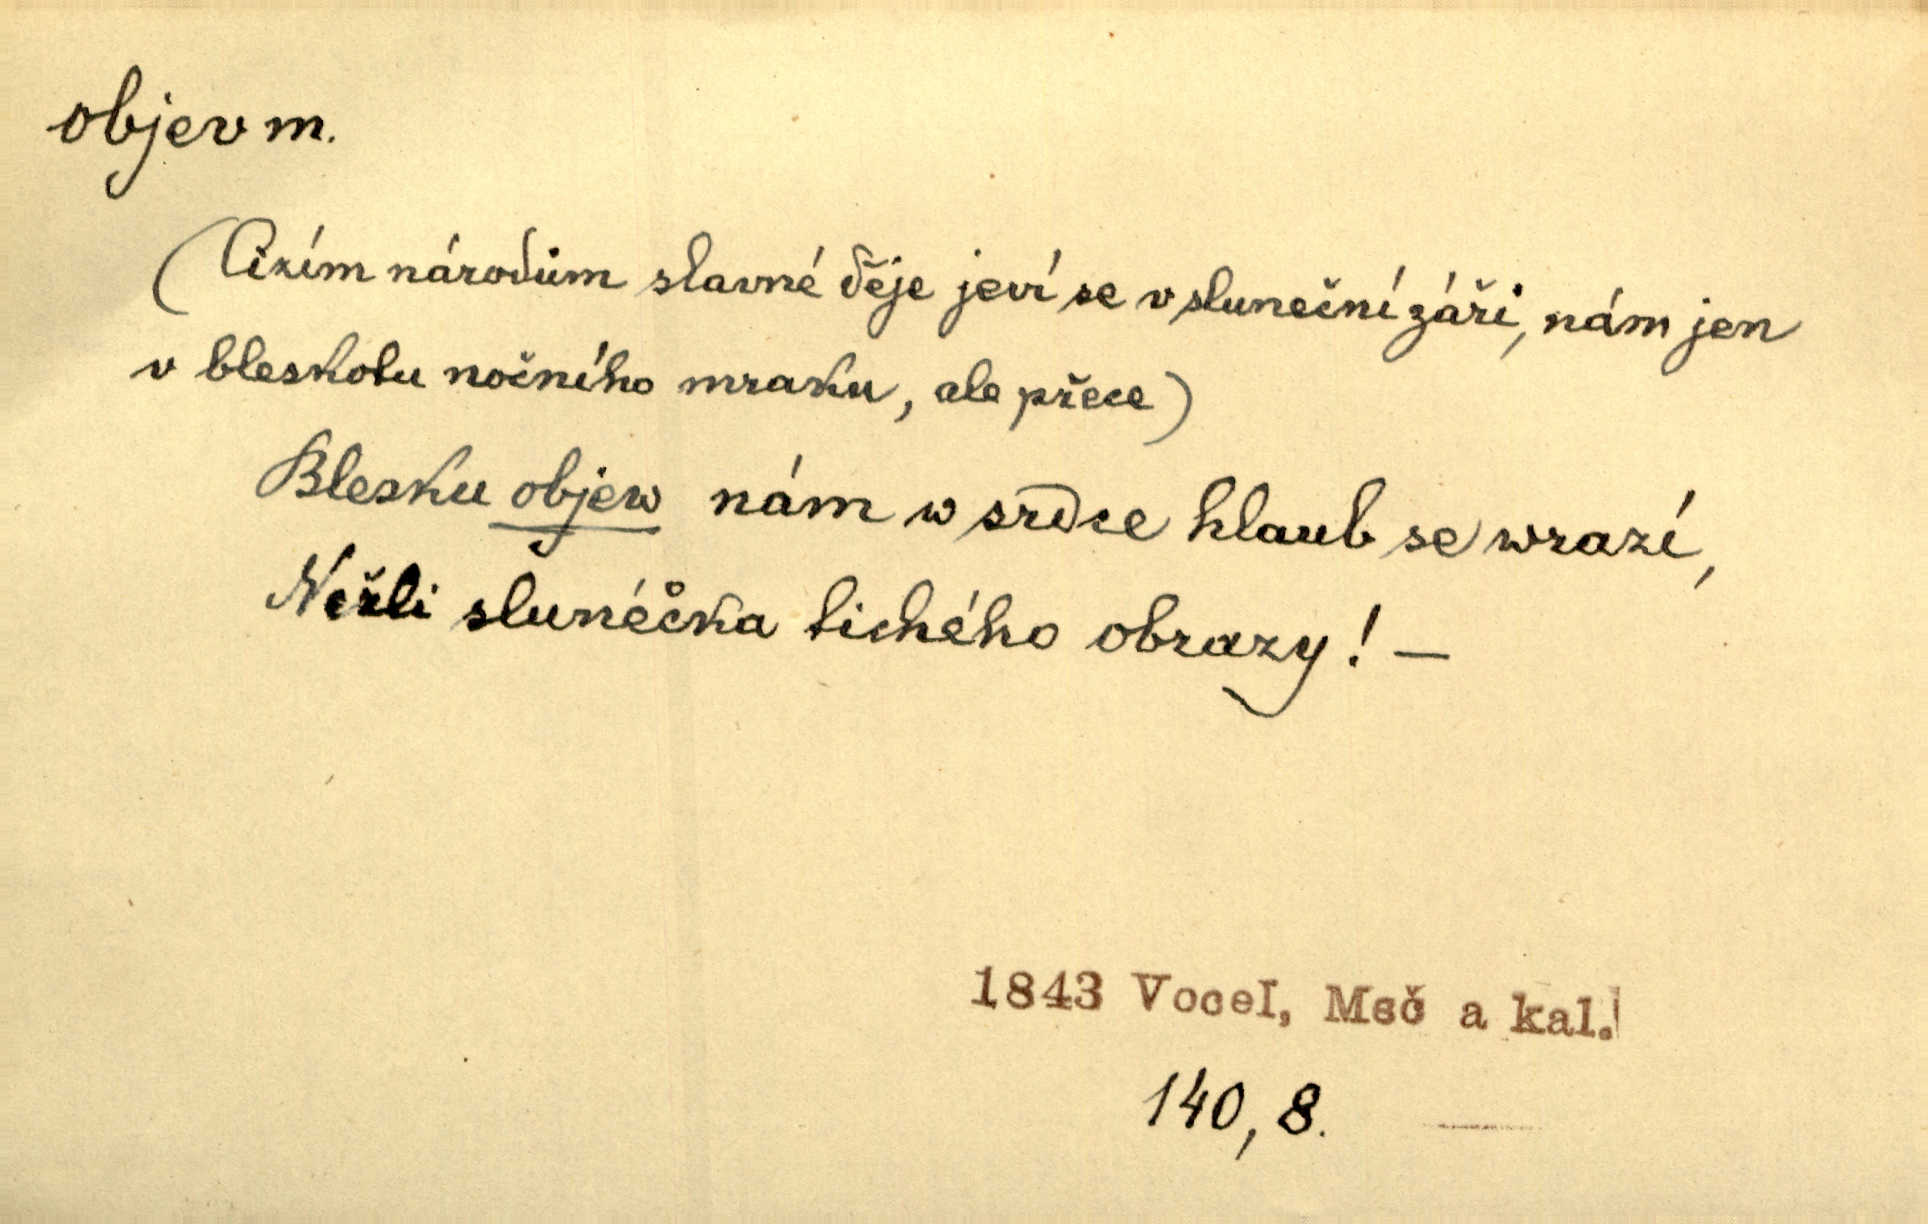 objev m.
(Cizím národům slavné děje jeví se v sluneční záři, nám jen
v bleskotu nočního mraku, ale přece)
Blesku objew nám w srdce hlaub se wrazí,
Nežli slunéčka tichého obrazy! —
1843 Vocel, Meč a kal.
140, 8.